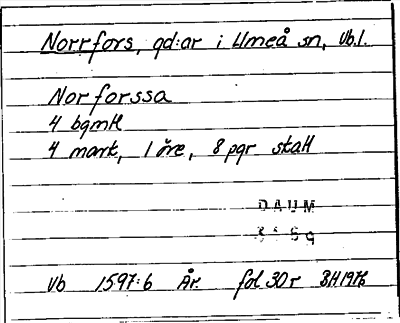 Norrfors, gd:ar i Umeå sn, Vb.l.
Norforssa
4 bgmtl
4 mark, 1 öre, 8 pgr skatt
DAUM
Vb 1597:6 År. fol 30 r BH 1976